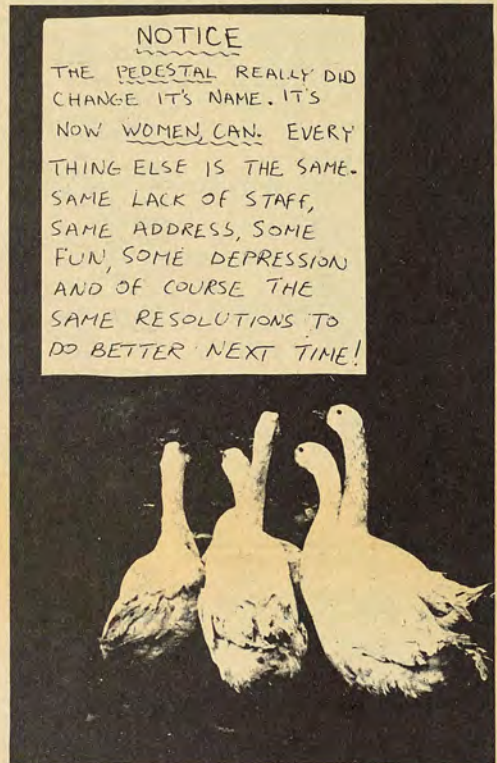 NOTICE
THE PEDESTAL REALLY DID
CHANGE IT'S NAME. IT'S
NOW WOMEN CAN. EVERY
THING ELSE IS THE SAME.
SAME LACK OF STAFF,
SAME ADDRESS, SOME
FUN, SOME DEPRESSION
AND OF COURSE THE
SAME RESOLUTIONS TO
DO BETTER NEXT TIME!